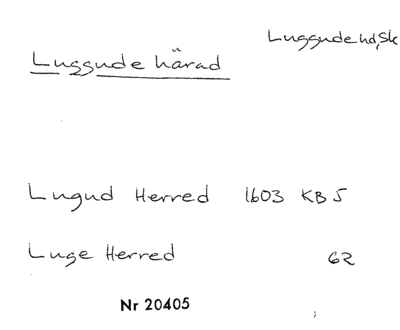 Luggude hd, Sk
Luggude härad
Lugud Herred 1603 KB 5
Luge Herred 62
Nr 20405